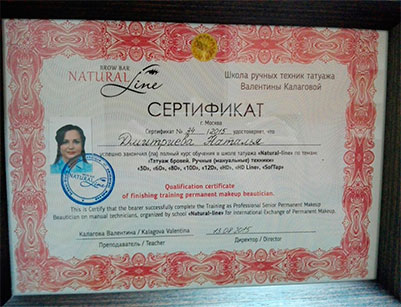 BROW BAR
NATURAL Line
Школа ручных техник татуажа
Валентины Калаговой
СЕРТИФИКАТ
г. Москва
Сертификат № 34 /2015 удостоверяет, что
Дмитриева Наталья
успешно закончил (ла) полный курс обучения в школе татуажа «Natural-line» по темам:
«Татуаж бровей. Ручные (мануальные) техники»
«3D», «6D», «8D», «10D», «12D», «HD», «HD Line», «SofTap»
Qualification certificate
of finishing training permanent makeup beautician.
This is Certify that the bearer successfully complete the Training as Professional Senior Permanent Makeup
Beautician on manual technicians, organized by school «Natural-line» for International Exchange of Permanent Makeup.
Калагова Валентина / Kalagova Valentina
13.08.2015
Преподаватель / Teacher
Директор / Director